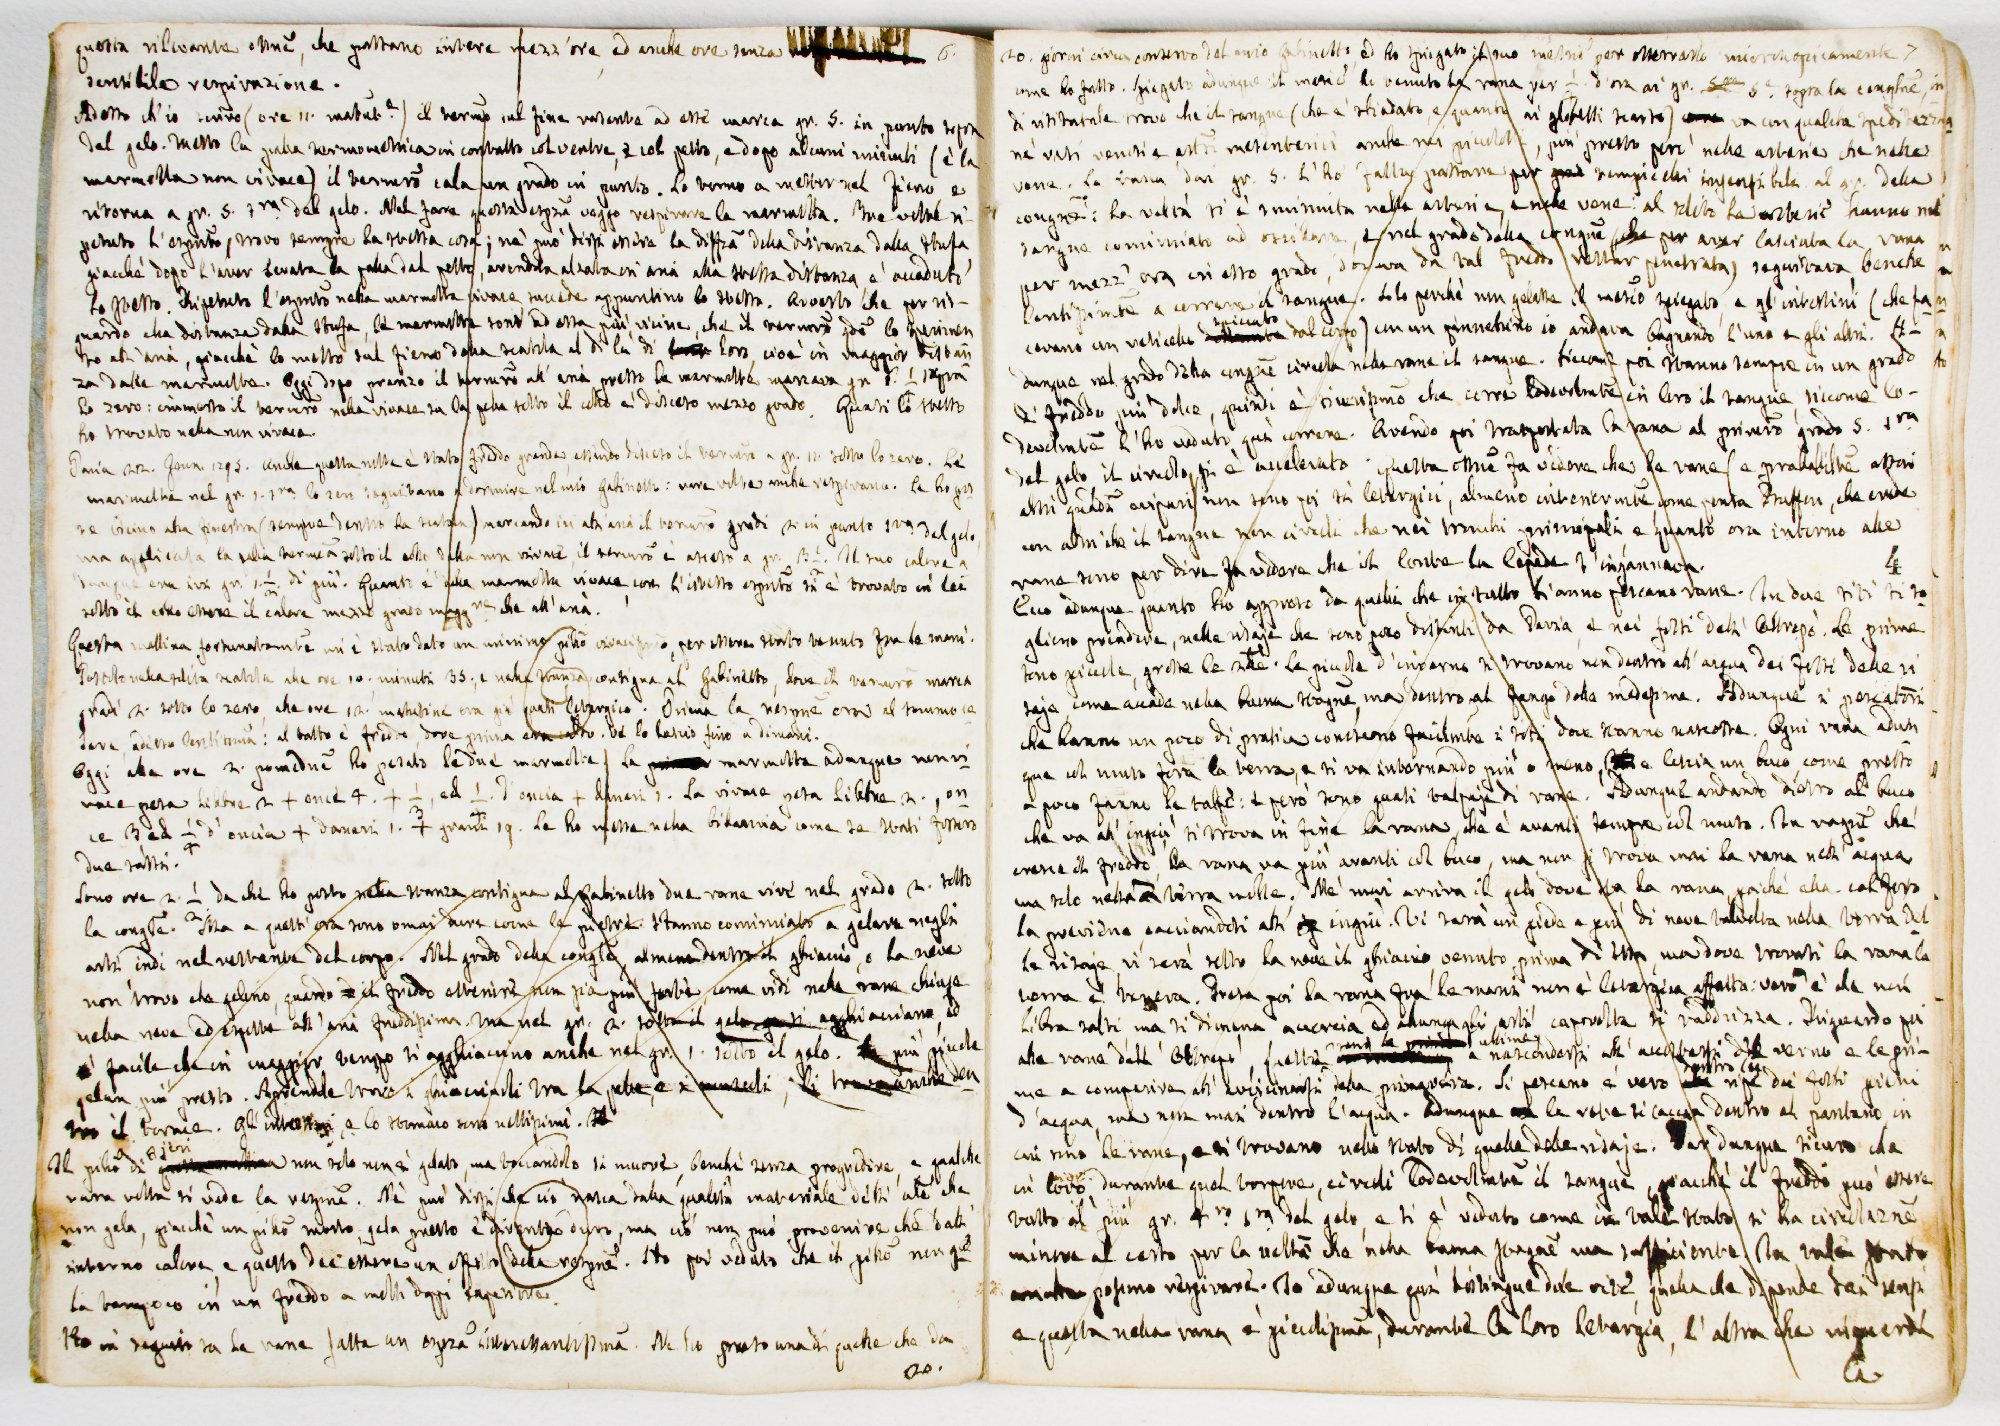 questa rilevante ossne, che passano intere mezz'ore, ed anche ore senza 6.
sensibile respirazione.
Adesso ch'io scrivo (ore 11. matut.e) il termo sul fine vasente ad esse marca gr. 5. in punto sopra
del gelo. Metto la palla termometrica in contatto col ventre, e col petto, e dopo alcuni minuti (è la
marmotta non vivace) il termro cala un grado in punto. Lo torno a metter nel fieno e
ritorna a gr. 5. sra del gelo. Nel fare questa esprza veggo respirare la marmotta. Due volte ri-
petuto l'esprmto, trovo sempre la stessa cosa; nè può dirsi essere la diffza della distanza dalla stufa
giacchè dopo l'aver levata la palla dal petto, avendola alzata in aria alla stessa distanza, è accaduto
lo stesso. Ripetuto l'esprmto nella marmotta vivace succede appuntino lo stesso. Avverto che per ri-
guardo alla distanza dalla stufa, le marmotte sono ad essa più vicine, che il termro qdo lo sperimen
to all'aria, giacchè lo metto sul fieno della scatola al di là di loro, cioè in maggior distan
za dalle marmotte. Oggi dopo pranzo il termro all'aria presso le marmotte marcava gr. 1/2 sopra
lo zero: immerso il termro nella vivace su la pelle sotto il collo è disceso mezzo grado. Quasi lo stesso
ho trovato nella non vivace.
Pavia 22. Genn. 1795. Anche questa notte è stato freddo grande, essendo disceso il termro a gr. 11. sotto lo zero. Le
marmotte nel gr. 1. sra lo zero seguitano a dormire nel mio Gabinetto: rare volte anche respirano. Le ho pos
te vicino alla finestra (sempre dentro la scatola) marcando in all'aria il termro gradi 2. in punto sra del gelo,
ma applicata la palla termca sotto il collo della non vivace, il termro è asceso a gr. 3 1/2. Il suo calore a
dunque era ivi gr. 1 1/2 di più. Quanto è alla marmotta vivace, con l'istesso esprmto si è trovato in lei
sotto il collo essere il calore mezzo grado maggre che all'aria.
Questa mattina fortunatamte mi è stato dato un minimo pikō vivacissimo, per essere stato tenuto fra le mani.
Postolo nella solita scatola alle ore 10. minuti 35., e nella stanza contigua al Gabinetto, dove il termro marca
gradi 2. sotto lo zero, alle ore 12. mattutine era già quasi letargico. Prima la respne era al sommo ce
lere, adesso lentissima: al tatto è freddo, dove prima era caldo. Ve lo lascio fino a dimani.
Oggi alle ore 2. pomeridne ho pesato le due marmotte. La marmotta adunque non vi
vace pesa libbre 2 + oncie 4. + 1/2, ed 1/3. d'oncia + danari 1. La vivace pesa libbre 2., on
cie 3, ed 1/4 d'oncia + danari 1. + grani 19. Le ho messe nella bidancia come se stati fossero
due sassi.
Sono ore 2. 1/2 da che ho posto nella stanza contigua al Gabinetto due rane vive nel grado 2. sotto
la congle. Ma a quest'ora sono omai dure come le pietre. Hanno cominciato a gelare negli
arti indi nel restante del corpo. Nel grado della congle, almeno dentro il ghiaccio, o la neve
non trovo che gelino, quando il freddo esteriore non sia più forte, come vidi nelle rane chiuse
nella neve ed esposte all'aria freddissima. Ma nel gr. 2. sotto il gelo già si agghiacciano, ed
è facile che in maggior tempo si agghiaccino anche nel gr. 1. sotto il gelo. Le più piccole
gelan più presto. Aprendole trovo i ghiacciuoli tra la pelle, e i muscoli, li trova anche den
tro il torace. Gl'intestini, e lo stomaco sono nettissimi.
Il pikō di Ajeri non solo non è gelato, ma toccandolo si muove, benchè senza progredire, e qualche
rara volta si vede la respne. Nè può dirsi che ciò nasca dalla qualità materiale delle ale che
non gela, giacchè un pikō morto, gela presto e diventa duro, ma ciò non può provenire che dall'
interno calore, e questo dee essere un effetto della respne. Ho poi veduto che il pikō non ge
la tampoco in un freddo a molti doppi superiore.
Ho in seguito su le rane fatta un esprza interessantissima. Ne ho preso una di quelle che da
20.
20. giorni circa conservo nel mio Gabinetto, ed ho spiegato il suo mesrio per osservarlo microscopicamente 7
come ho fatto. Spiegato adunque il mesrio ho tenuto la rana per 1/2. d'ora ai gr. 5. sopra la conglne, in
di visitatala trovo che il sangue (che è sfiadato e quanto ai globetti scarso) va con qualche speditezza
ne' vasi venosi e artsi mesenterici anche nei piccoli, più presto però nelle arterie che nelle
vene. La rana dai gr. 5. l'ho fatta passare per tempi insensibili al gr. della
congne: la velctà si è sminuita nelle arterie, e nelle vene: al solito le arterie hanno nel
sangue cominciato ad oscillare, e nel grado della congne (che per aver lasciata la rana
per mezz'ora in esso grado, doveva da tal freddo restar penetrata) seguitava benchè
lentissimte a correre il sangue. Solo perchè non gelasse il mesrio spiegato, e gl'intestini (che fa
cevano con reticello spiccato dal corpo) con un pennellino io andava bagnando l'uno e gli altri. A-
dunque nel grado della congne circola nelle rane il sangue. Siccome poi stanno sempre in un grado
di freddo più dolce, quindi è sicurissimo che corre lodevolmte in loro il sangue siccome lo-
devolmte l'ho veduto qui correre. Avendo poi trasportata la rana al primiero grado 5. sra
del gelo il circolo si è accelerato. Questa ossne fa vedere che le rane (e probabilmte assai
altri quadri ovipari non sono poi sì letargici, almeno interiormte come pensa Buffon, che crede
con altri che il sangue non circoli che nei tronchi principali e quanto ora intorno alle
rane sono per dire fa vedere che il Conte La Cepede s'ingannava.
Ecco adunque quanto ho appreso da quelli che in tutto l'anno pescano rane. In due siti si so
gliono prendere, nelle risaje che sono poco distanti da Pavia, e nei fossi dell'Oltrepò. Le prime
sono piccole, grosse le 2de. Le piccole d'inverno si trovano non dentro all'acqua dei fossi delle ri
saje come accade nella buona stagne, ma dentro al fango delle medesime. Adunque i pescatori
che hanno un poco di pratica conoscono facilmte i siti dove stanno nascoste. Ogni rana adun
que col muso fora la terra, e si va internando più o meno, e lascia un buco come presso
a poco fanno le talpe: e però sono quasi talpaje di rane. Adunque andando dietro al buco
che va all'ingiù si trova in fine la rana, che è avanti sempre col muso. In ragne che
cresce il freddo, la rana va più avanti col buco, ma non si trova mai la rana nell'acqua
ma solo nella terra molle. Nè mai arriva il gelo dove sta la rana, poichè ella col foro
la previene cacciandosi all'ingiù. Vi sarà un piede e più di neve talvolta nella terra del
le risaje, vi sarà sotto la neve il ghiaccio venuto prima di essa, ma dove trovasi la rana la
terra è tenera. Presa poi la rana fra le mani non è letargica affatto: vero è che non
libra salti ma si dimena accorcia ed allunga gli arti capovolta si raddrizza. Riguardo poi
alle rane dell'Oltrepò queste sono le ultime a nascondersi all'accostarsi del verno e le pri-
me a comparire all'avvicinarsi della primavera. Si pescano è vero dentro le ripe dei fossi pieni
d'acqua, ma non mai dentro l'acqua. Adunque la rete si caccia dentro al pantano in
cui sono le rane, e si trovano nello stato di quelle delle risaje. Par dunque sicuro che
in loro durante quel torpore, circoli lodevolmente il sangue, giacchè il freddo può essere
tutto al più gr. 4. ro sra del gelo, e si è veduto come in tale stato si ha circolazne
minore al certo per la velctà che nella buona stagne ma sufficiente. In tale stato
possono respirare. Io adunque qui distinguo due vite quella che dipende dai sensi
e questa nella rana è picciolissima, durante la loro letargia, l'altra che riguarda
la